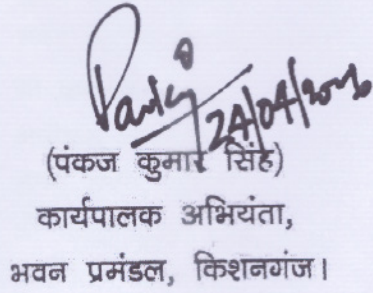 Pankaj
24/04/2026
(पंकज कुमार सिंह)
कार्यपालक अभियंता,
भवन प्रमंडल, किशनगंज।